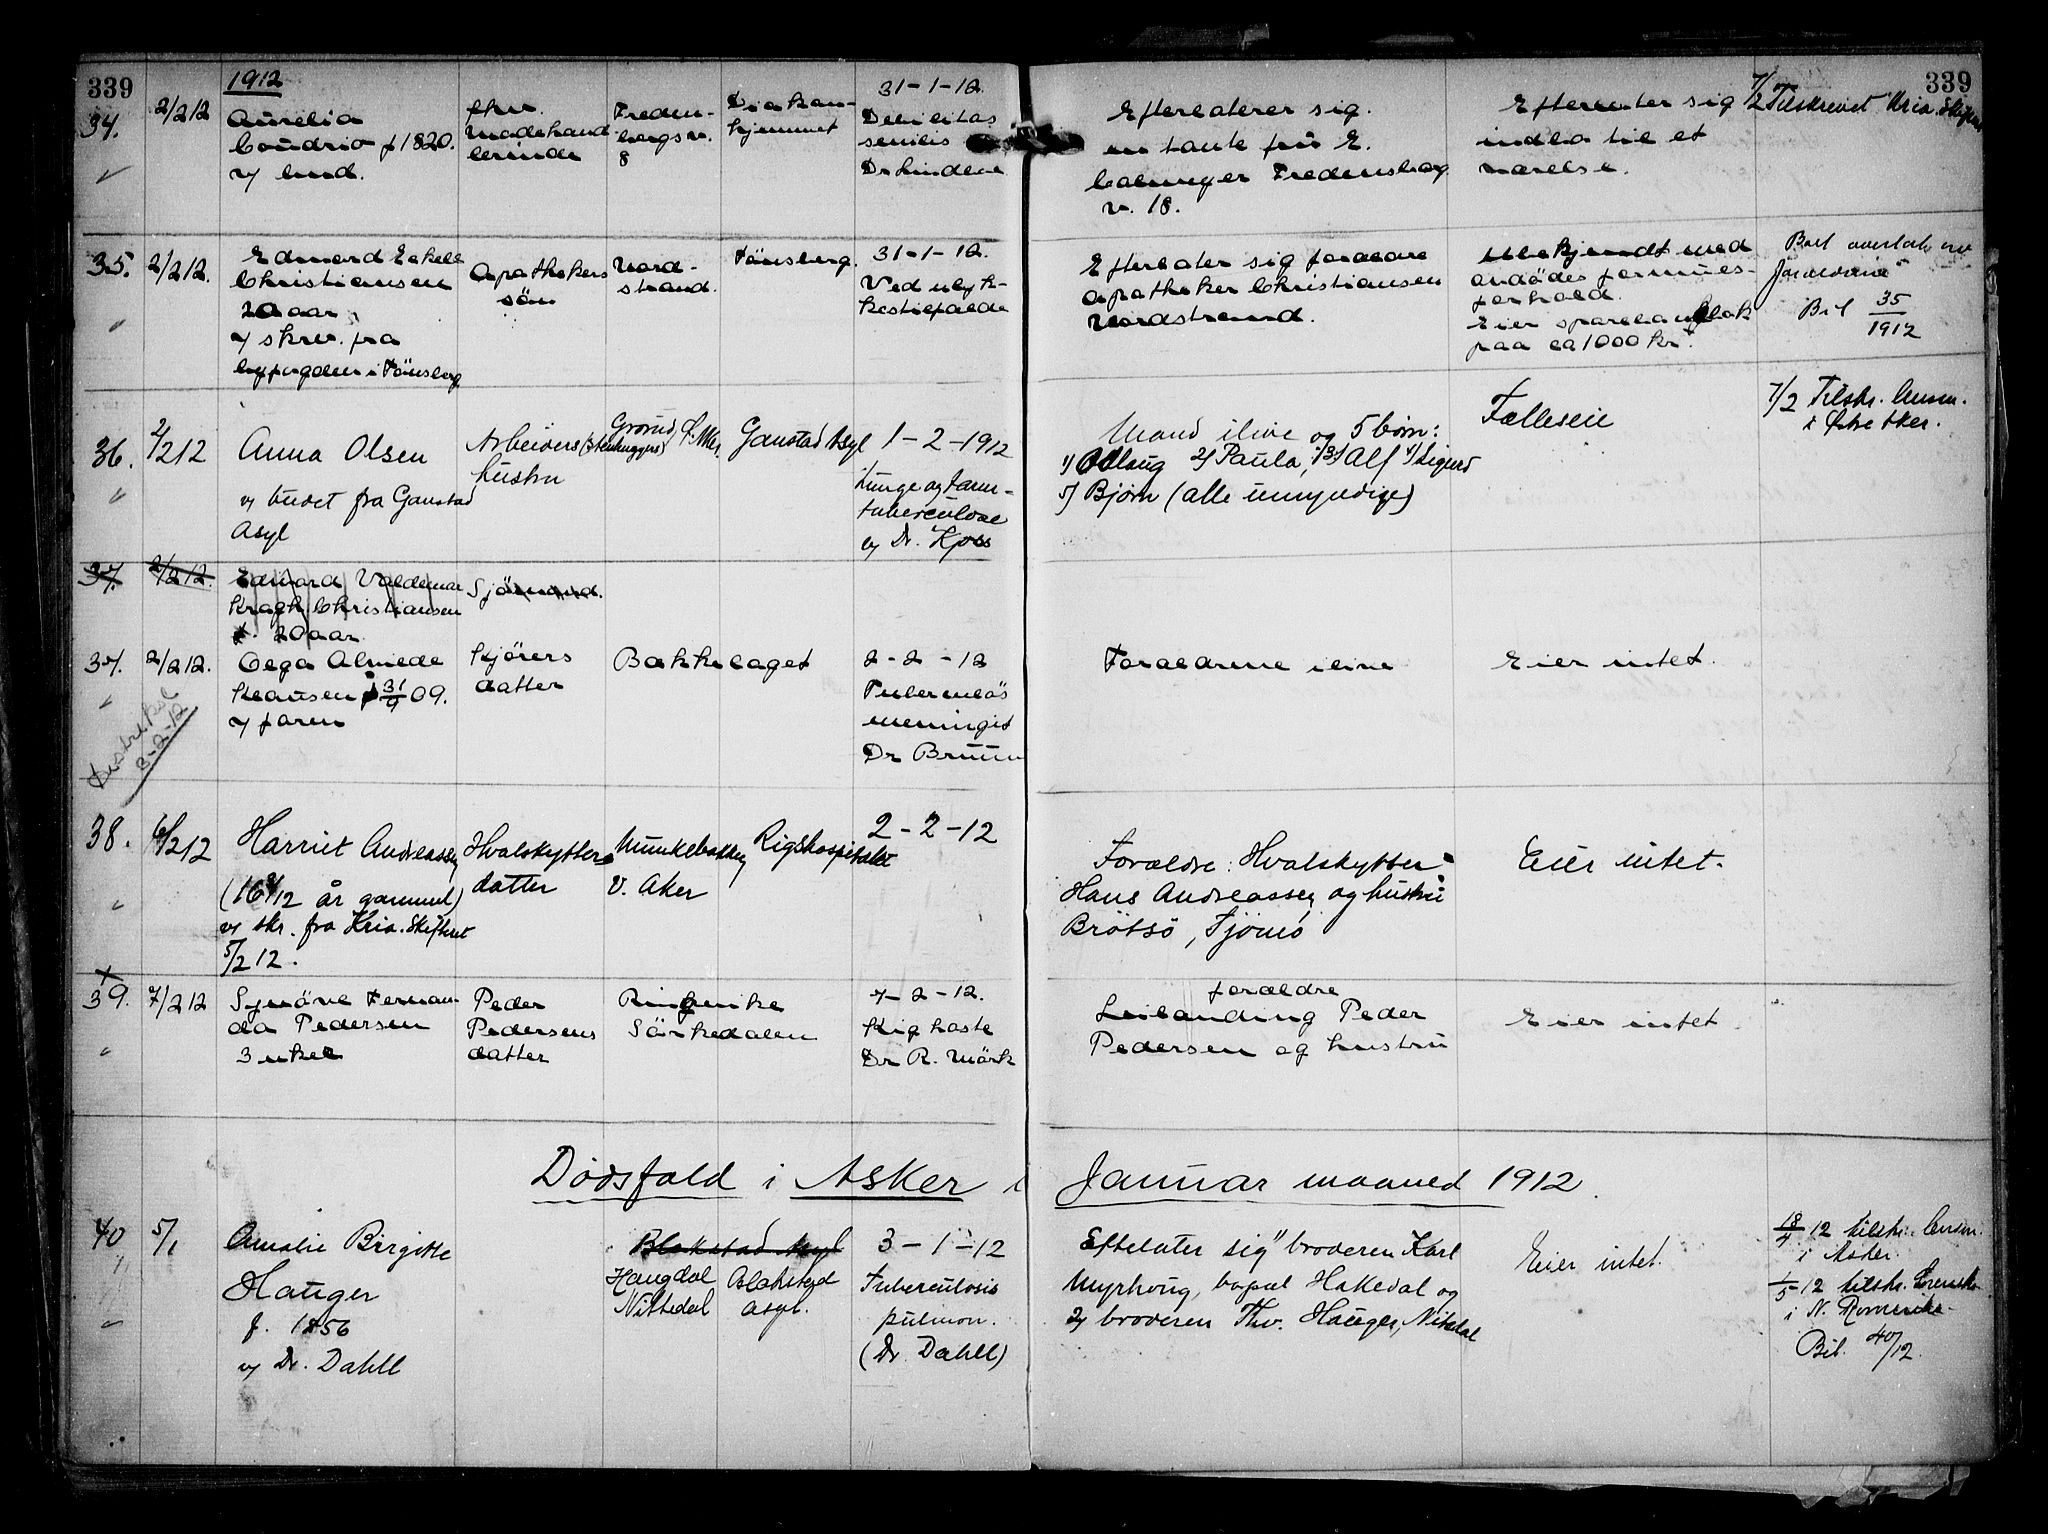 339
1912
339
34.
2/2 12
Aurelia
Coudrio f 1820.
v/ lund.
fhv.
modehand
lerinde
Freden-
bergsv.
8
Diakon-
hjemmet
31-1-12.
Debilitas
senilis
Dr Lindboe
Efterlater sig
en tante fru E.
Fredensborg
v. 18.
Efterlater sig
indbo til et
værelse.
7/2 Tilskrevet Kria. skifteret
35.
2/2 12.
Edward Eskell
Christiansen
20 aar
v/ skrev. fra
byfogden i Tönsberg
Apothekers
sön
Nord-
strand.
Tönsberg.
31-1-12.
Ved ulyk-
kestilfælde
Efterlater sig forældre
apotheker Christiansen
Nordstrand.
Ubekjendt med
avdödes formues-
forhold.
Eier sparebankbok
paa ca 1000 kr.
Boet overtat av
forældrene
Bil 35
1912
36.
2/2 12
Anna Olsen
v/ budet fra Gaustad
Asyl
Arbeiders (Stenhuggers)
hustru
Grorud Ö. Aker
Gaustad Asyl
1-2-1912
Lunge og tarm-
tuberculose
v/ Dr. Hjoss
Mand ilive og 5 börn:
1/ Odlaug 2/ Paula, 3/ Alf 4/ Sigurd
5/ Bjørn (alle umyndige)
Fælleseie
7/2 Tilskr. Lensm.
i Østre Aker.
37.
2/2 12.
Edward Valdemar
Kragh Christiansen
20 aar
Sjömand.
37.
2/2 12.
Olga Almede
Klausen f 31/9 09.
v/ faren
Kjörers
datter
Bækkelaget
2-2-12
Tuberculös
meningit
Dr Bruun
Forældrene ilive
Eier intet.
8-2-12
38.
6/2 12
Harriet Andreassen
(16 2/12 år gammel)
v/ skr. fra Kria. Skifteret
5/2 12.
Hvalskytters
datter
Munkebakken
V. Aker
Rigshospitalet
2-2-12
Forældre: Hvalskytter
Hans Andreassen og hustru
Brötsö, Tjömö
Eier intet.
39.
7/2 12
Synöve Fernan-
da Pedersen
3 uker
Peder
Pedersens
datter
Ringerike
Sörkedalen
7-2-12.
Kighoste
Dr R. Mörk
forældre
Leilænding Peder
Pedersen og hustru
Eier intet.
Dödsfald i Asker i Januar maaned 1912.
40
5/1
Amalie Birgitte
Hauger
f. 1856
v/ Dr. Dahll
Blakstad Asyl
Haugdal
Nittedal
Blakstad
asyl.
3-1-12
Tuberculosis
pulmon.
(Dr. Dahll)
Efterlater sig 1/ broderen Karl
Myrhoug, bopæl Hakedal og
2/ broderen Thv. Hauger, Nitedal
Eier intet.
18/4 12 tilskr. Lensm.
i Asker.
1/5 12 tilskr. Sorensk.
i N. Romerike.
Bil. 40/12.